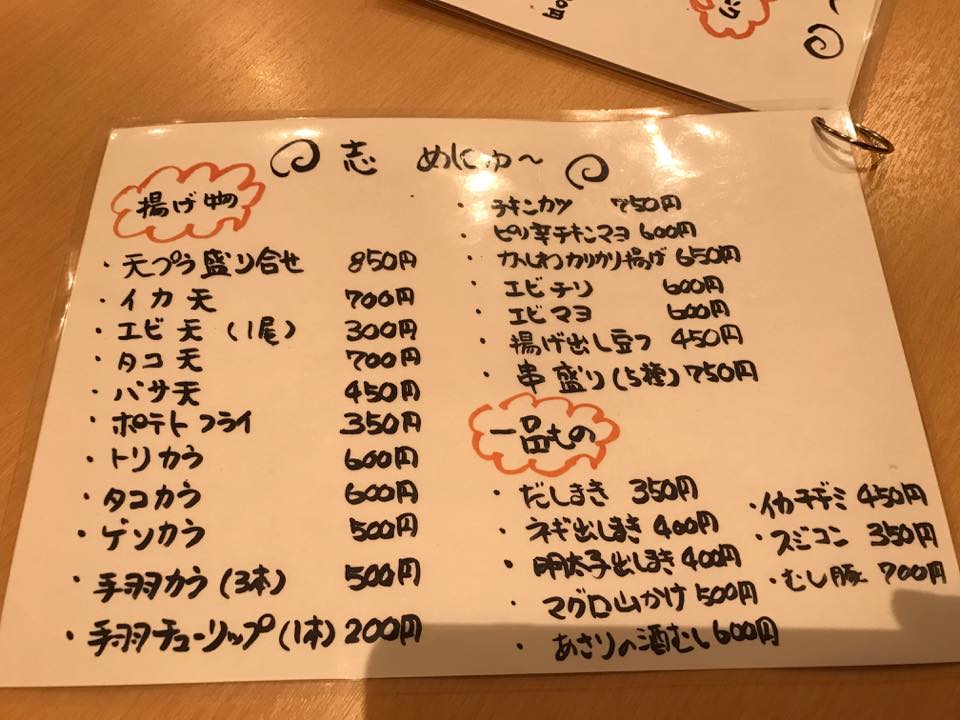 志 めにゅ～
揚げ物
・天プラ盛り合せ 850円
・イカ天 700円
・エビ天(1尾) 300円
・タコ天 700円
・バサ天 450円
・ポテトフライ 350円
・トリカラ 600円
・タコカラ 600円
・ゲソカラ 500円
・手羽カラ(3本) 500円
・手羽チューリップ(1本) 200円
・チキンカツ 750円
・ピリ辛チキンマヨ 600円
・かしわカリカリ揚げ 650円
・エビチリ 600円
・エビマヨ 600円
・揚げ出し豆フ 450円
・串盛り(5種) 750円
一品もの
・だしまき 350円
・ネギ出しまき 400円
・明太子出しまき 400円
・マグロ山かけ 500円
・あさりの酒むし 600円
・イカチヂミ 450円
・スジコン 350円
・むし豚 700円